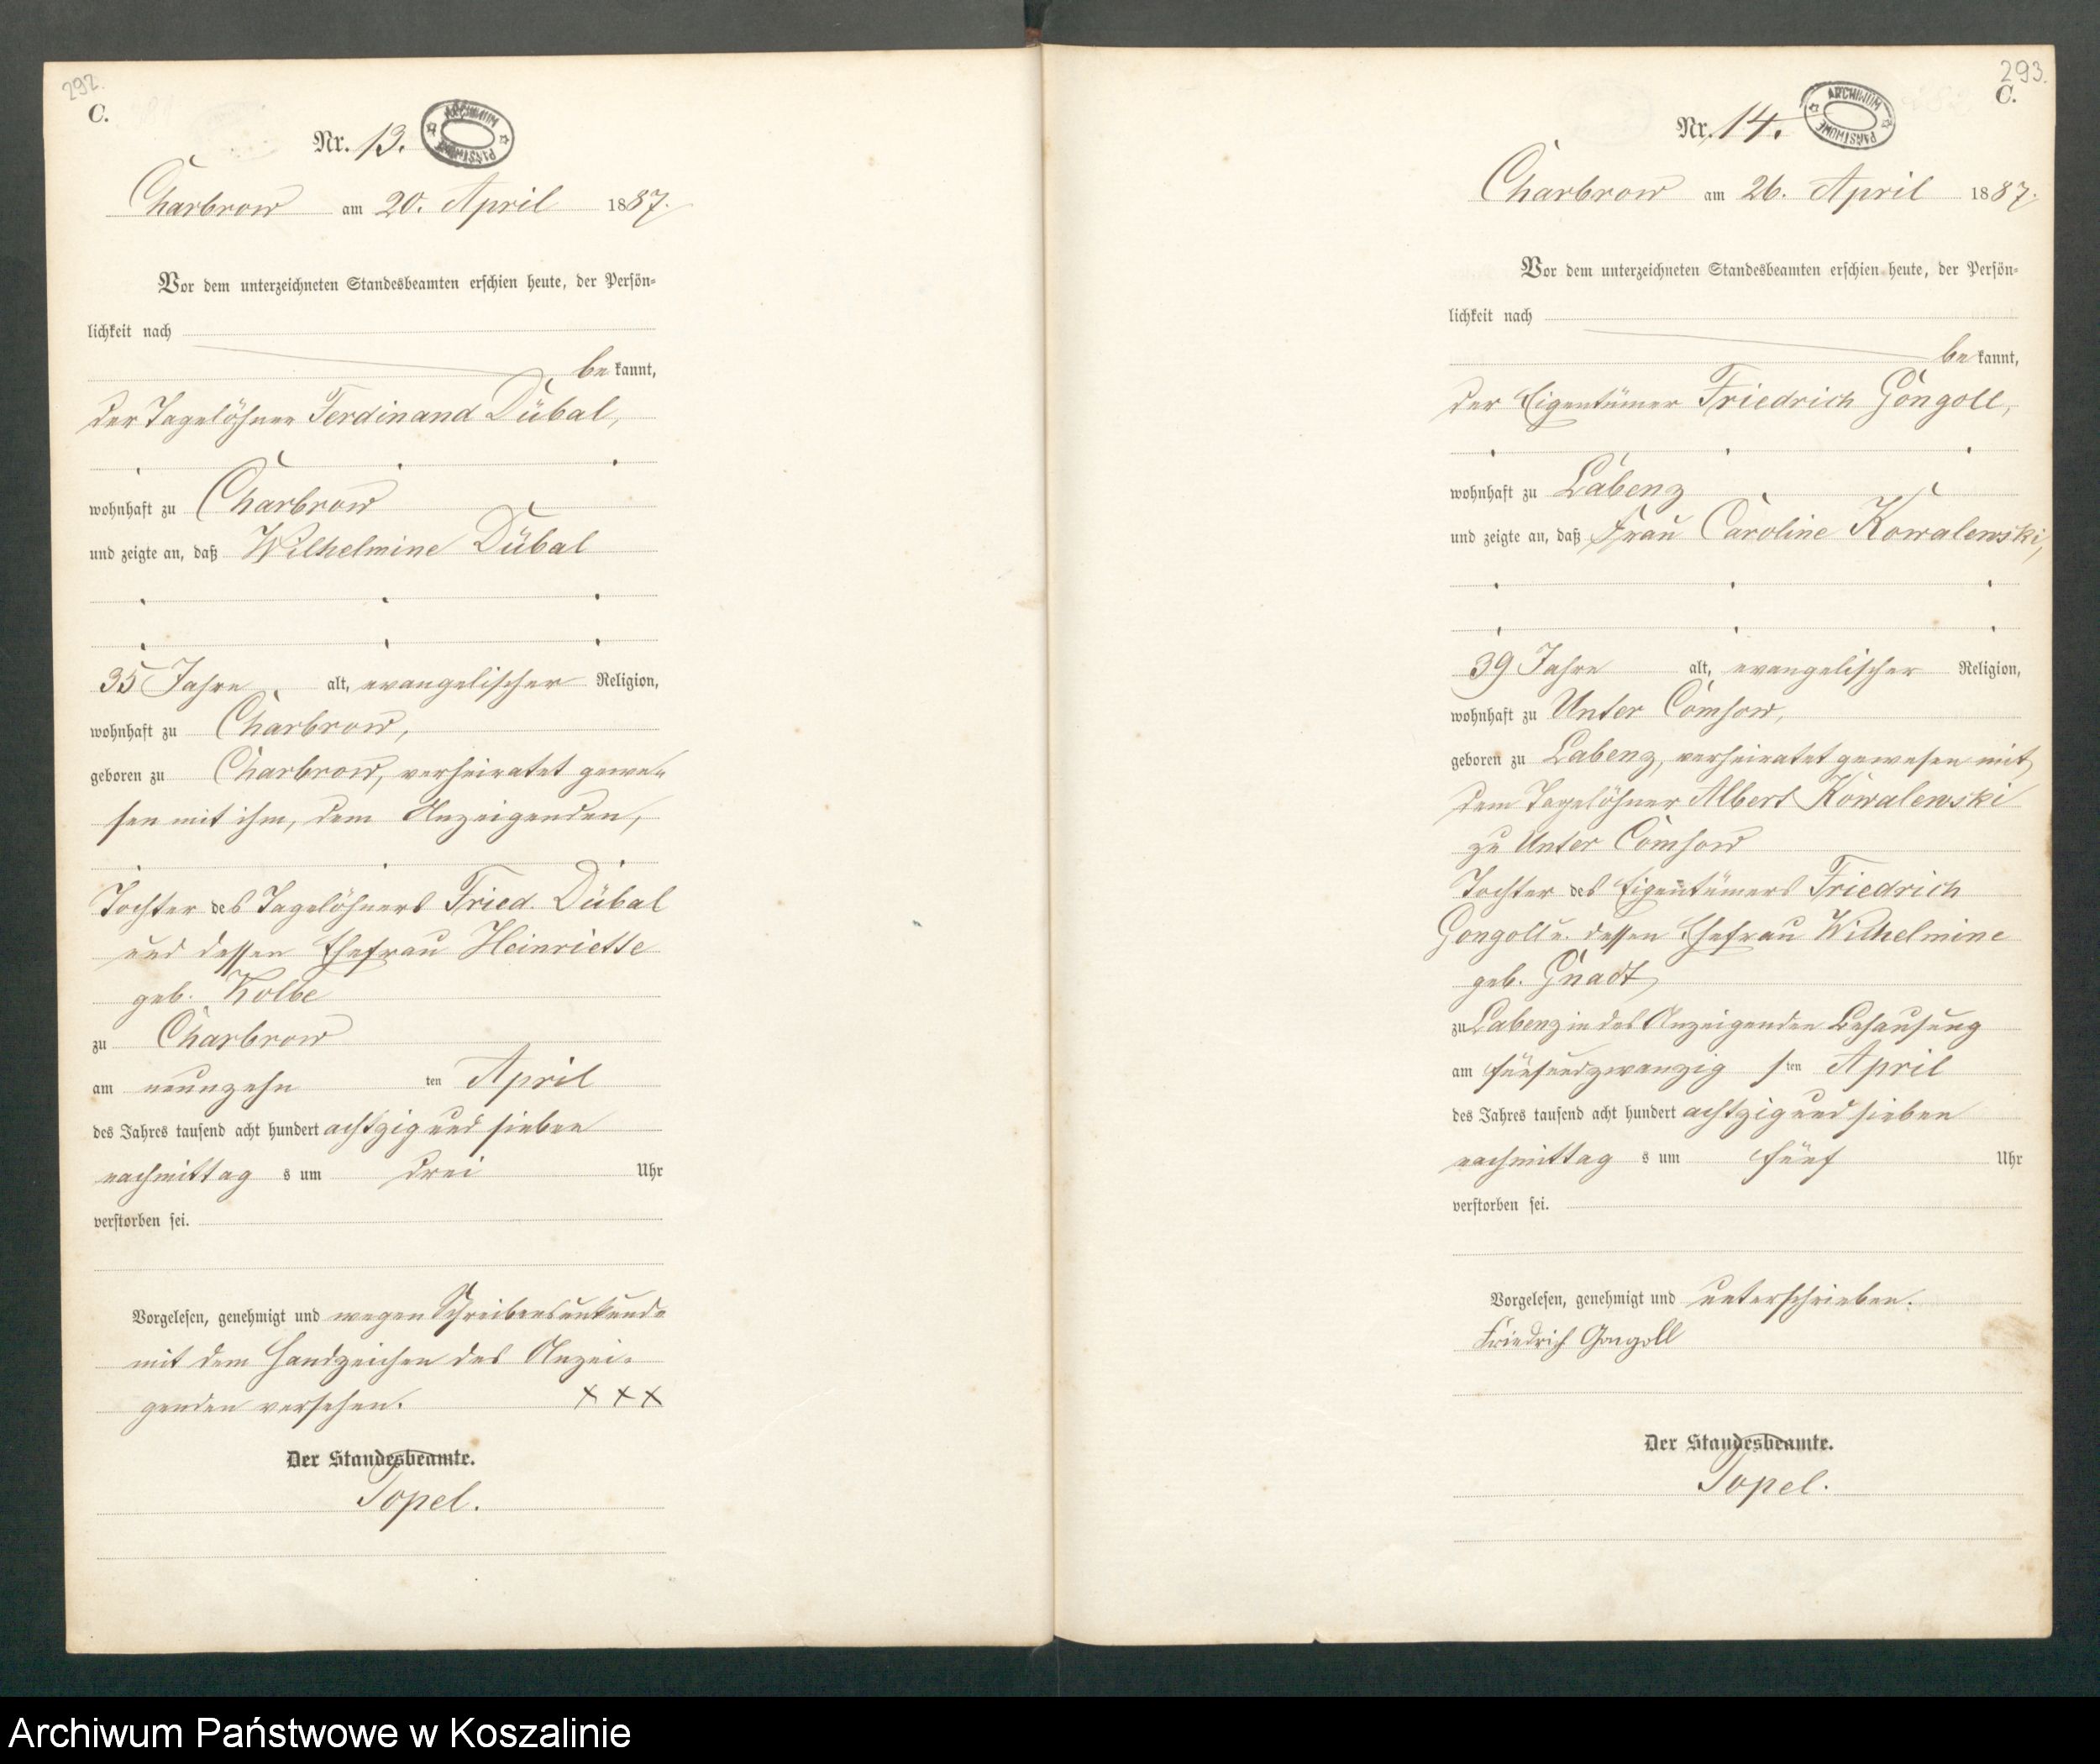 292.
C.
Nr. 13.
ARCHIWUM PAŃSTWOWE
Charbrow am 20. April 1887.
Vor dem unterzeichneten Standesbeamten erschien heute, der Persön-
lichkeit nach
be kannt,
der Tagelöhner Ferdinand Dübal,
wohnhaft zu Charbrow
und zeigte an, daß Wilhelmine Dübal
35 Jahre alt, evangelischer Religion,
wohnhaft zu Charbrow,
geboren zu Charbrow, verheiratet gewe-
sen mit ihm, dem Anzeigenden,
Tochter des Tagelöhners Fried. Dübal
und dessen Ehefrau Heinriette
geb. Kolbe
zu Charbrow
am neunzehn ten April
des Jahres tausend acht hundert achtzig und sieben
nachmittag s um drei Uhr
verstorben sei.
Vorgelesen, genehmigt und wegen Schreibensunkunde
mit dem Handzeichen des Anzei-
genden versehen. XXX
Der Standesbeamte.
Topel.
293.
C.
Nr. 14.
ARCHIWUM PAŃSTWOWE
Charbrow am 26. April 1887.
Vor dem unterzeichneten Standesbeamten erschien heute, der Persön-
lichkeit nach
be kannt,
der Eigentümer Friedrich Gongoll,
wohnhaft zu Labenz
und zeigte an, daß Frau Caroline Kowalewski,
39 Jahre alt, evangelischer Religion,
wohnhaft zu Unter Comsow,
geboren zu Labenz, verheiratet gewesen mit
dem Tagelöhner Albert Kowalewski
zu Unter Comsow
Tochter des Eigentümers Friedrich
Gongoll u. dessen Ehefrau Wilhelmine
geb. Gnadt,
zu Labenz in des Anzeigenden Behausung
am fünfundzwanzig s ten April
des Jahres tausend acht hundert achtzig und sieben
nachmittag s um fünf Uhr
verstorben sei.
Vorgelesen, genehmigt und unterschrieben.
Friedrich Gongoll
Der Standesbeamte.
Topel.
Archiwum Państwowe w Koszalinie